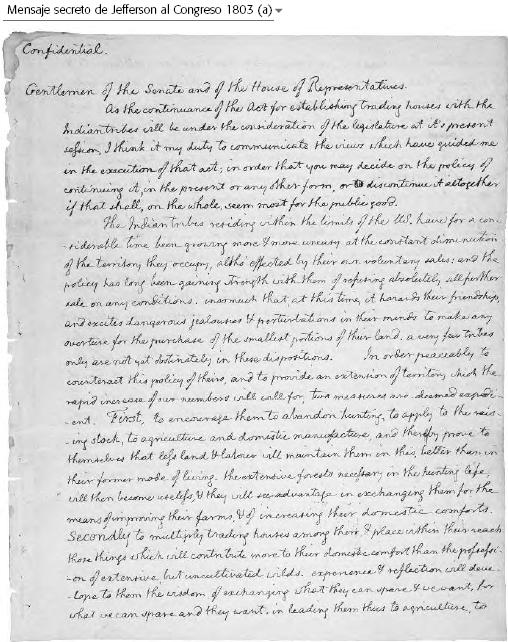 Mensaje secreto de Jefferson al Congreso 1803 (a)
Confidential.
Gentlemen of the Senate and of the House of Representatives.
As the continuance of the Act for establishing trading houses with the
Indian tribes will be under the consideration of the legislature at it's present
session, I think it my duty to communicate the views which have guided me
in the execution of that act; in order that you may decide on the policy of
continuing it, in the present or any other form, or to discontinue it altogether
if that shall, on the whole, seem most for the public good.
The Indian tribes residing within the limits of the U.S. have for a con-
-siderable time been growing more & more uneasy at the constant diminution
of the territory they occupy, altho' effected by their own voluntary sales; and the
policy has long been gaining strength with them of refusing absolutely all further
sale on any conditions. insomuch that, at this time, it hazards their friendship,
and excites dangerous jealousies & perturbations in their minds to make any
overture for the purchase of the smallest portions of their land. a very few tribes
only are not yet obstinately in these dispositions. In order peaceably to
counteract this policy of theirs, and to provide an extension of territory which the
rapid increase of our numbers will call for, two measures are deemed expedi-
-ent. First, to encourage them to abandon hunting, to apply to the rais-
-ing stock, to agriculture and domestic manufacture, and thereby prove to
themselves that less land & labour will maintain them in this, better than in
their former mode of living. the extensive forests necessary in the hunting life,
will then become useless, & they will see advantage in exchanging them for the
means of improving their farms, & of increasing their domestic comforts.
Secondly to multiply trading houses among them, & place within their reach
those things which will contribute more to their domestic comfort than the possessi-
-on of extensive, but uncultivated wilds. experience & reflection will deve-
-lope to them the wisdom of exchanging what they can spare & we want, for
what we can spare and they want. in leading them thus to agriculture, to